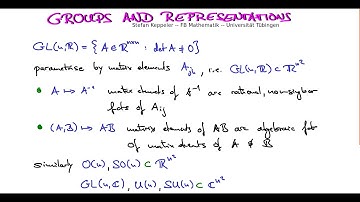 GROUPS AND REPRESENTATIONS
Stefan Keppeler – FB Mathematik – Universität Tübingen
GL(n,ℝ) = { A ∈ ℝⁿˣⁿ : det A ≠ 0 }
parametrise by matrix elements A_jk, i.e. GL(n,ℝ) ⊂ ℝ^n²
• A ↦ A⁻¹ matrix elements of A⁻¹ are rational, non-singular
fcts of A_ij
• (A,B) ↦ AB matrix elements of AB are algebraic fcts
of matrix elements of A & B
similarly O(n), SO(n) ⊂ ℝ^n²
GL(n,ℂ), U(n), SU(n) ⊂ ℂ^n²